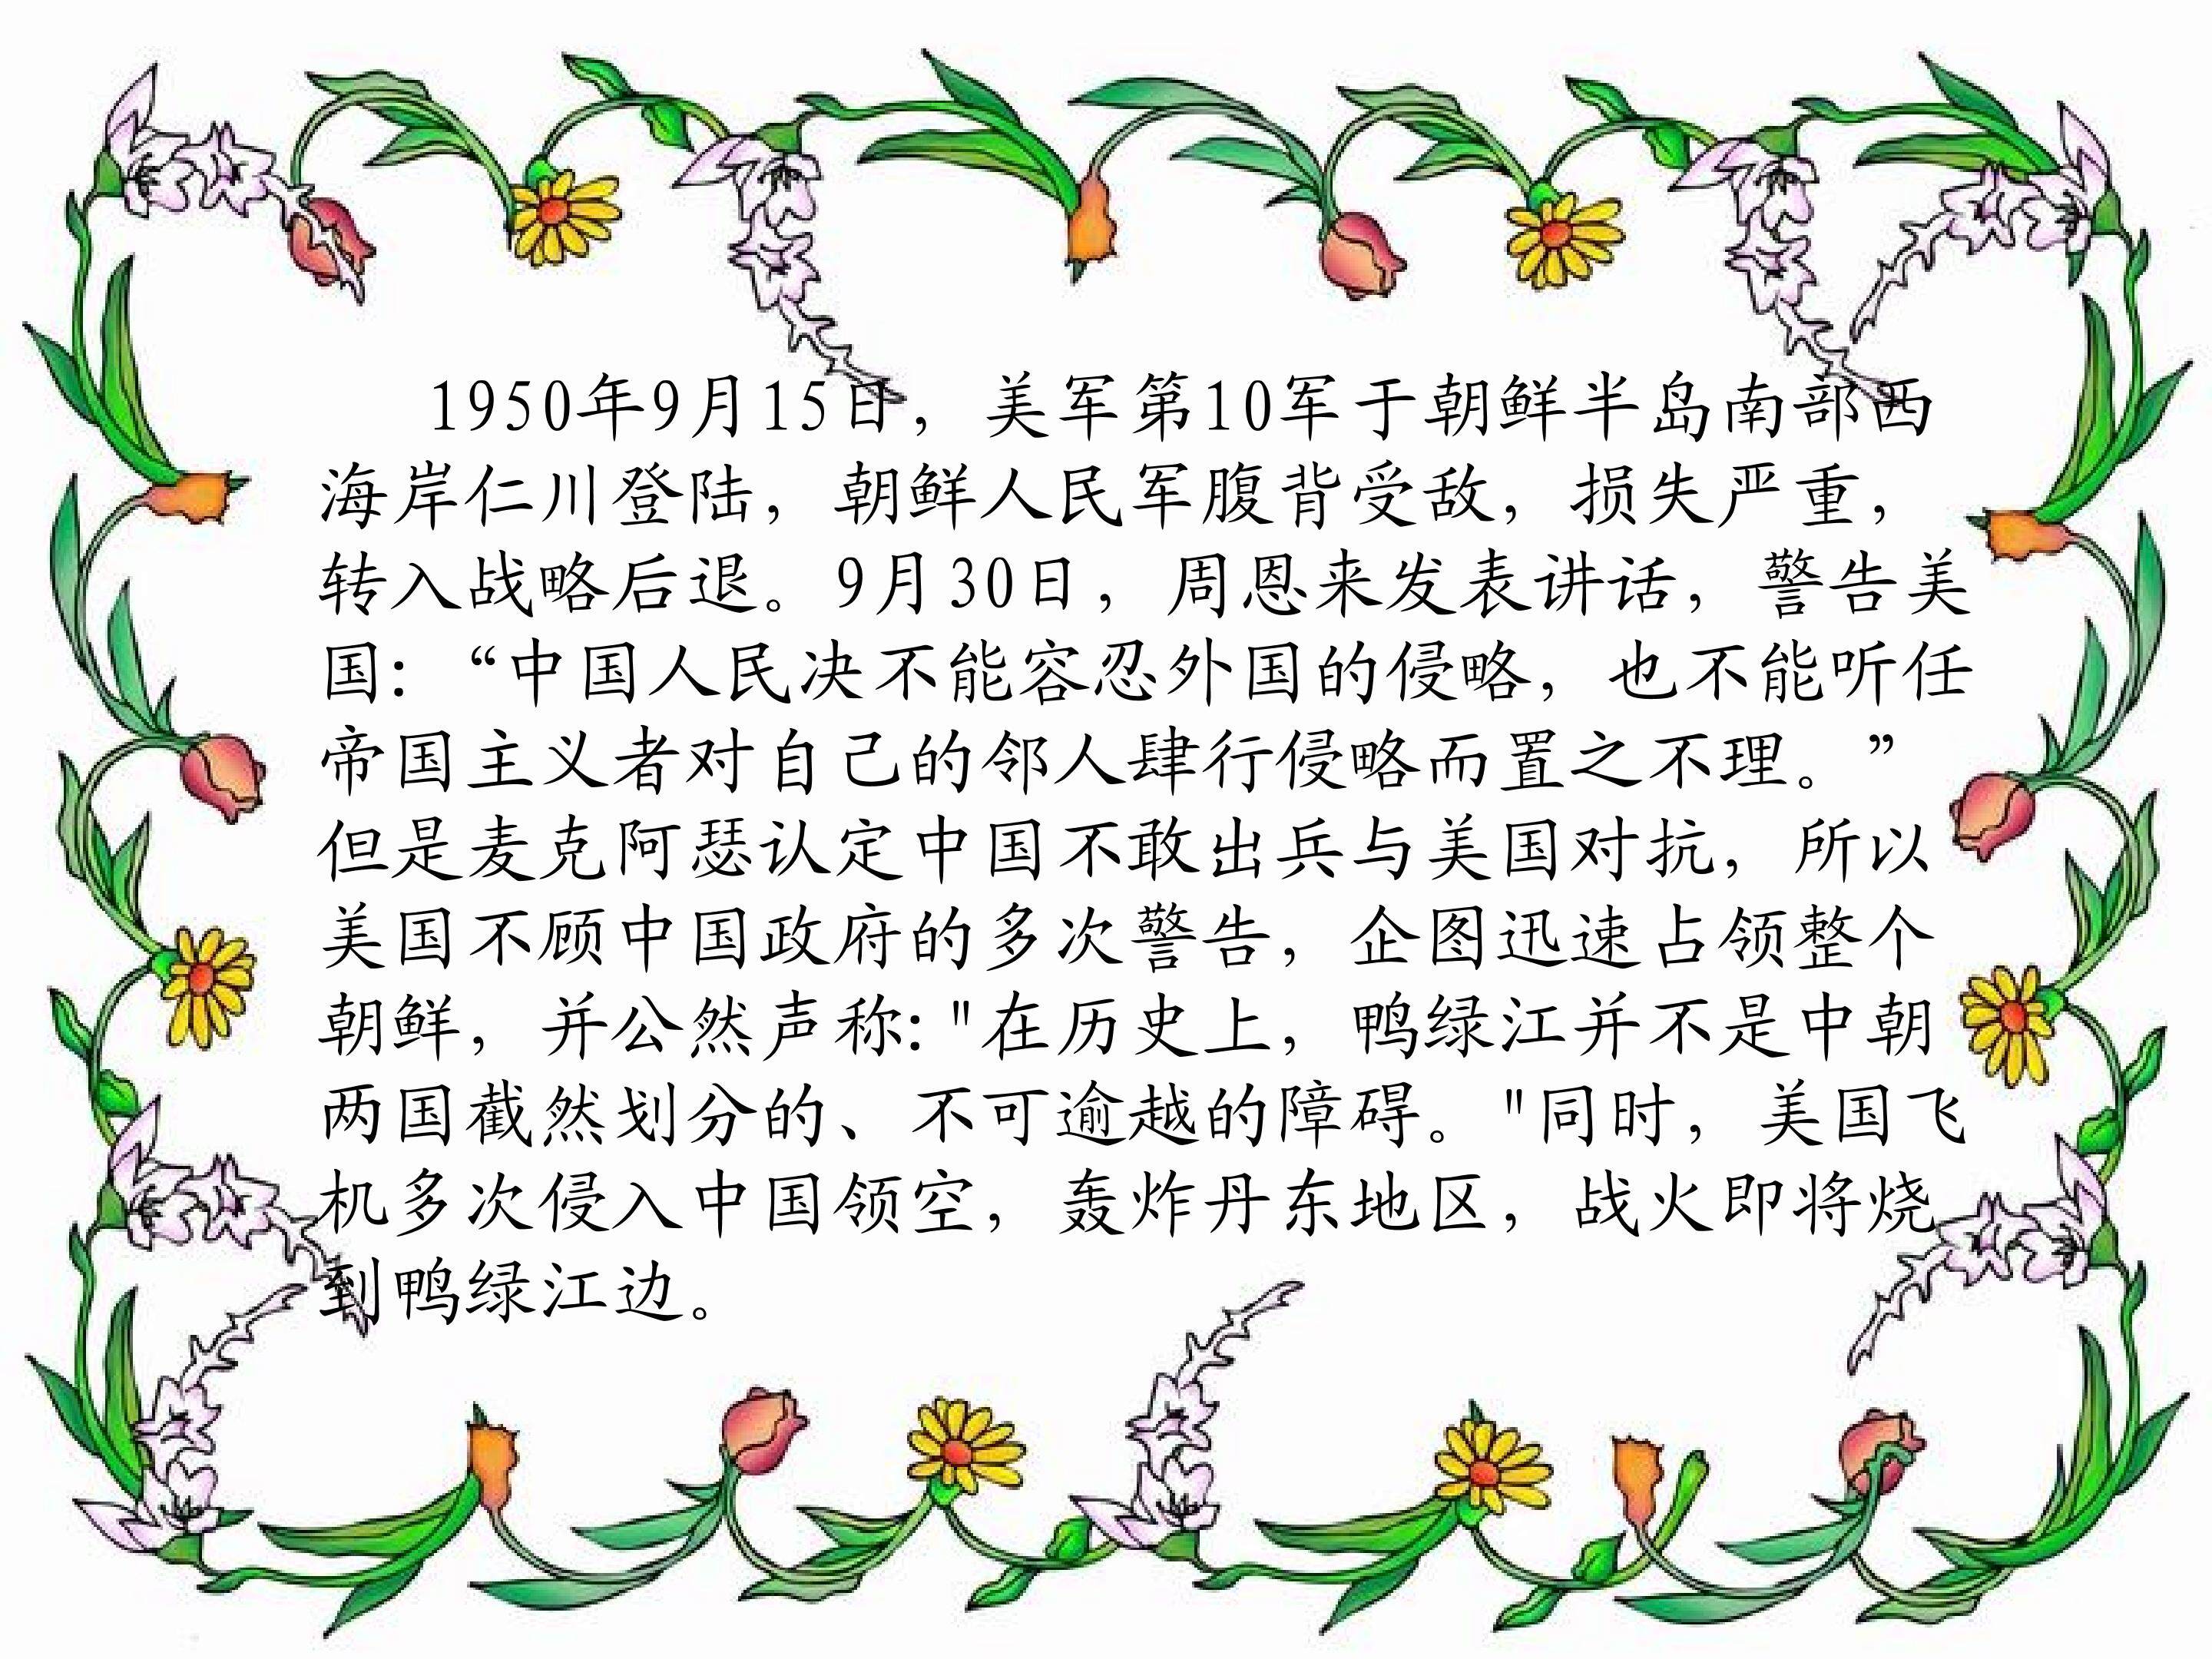 1950年9月15日，美军第10军于朝鲜半岛南部西
海岸仁川登陆，朝鲜人民军腹背受敌，损失严重，
转入战略后退。9月30日，周恩来发表讲话，警告美
国：“中国人民决不能容忍外国的侵略，也不能听任
帝国主义者对自己的邻人肆行侵略而置之不理。”
但是麦克阿瑟认定中国不敢出兵与美国对抗，所以
美国不顾中国政府的多次警告，企图迅速占领整个
朝鲜，并公然声称:"在历史上，鸭绿江并不是中朝
两国截然划分的、不可逾越的障碍。"同时，美国飞
机多次侵入中国领空，轰炸丹东地区，战火即将烧
到鸭绿江边。